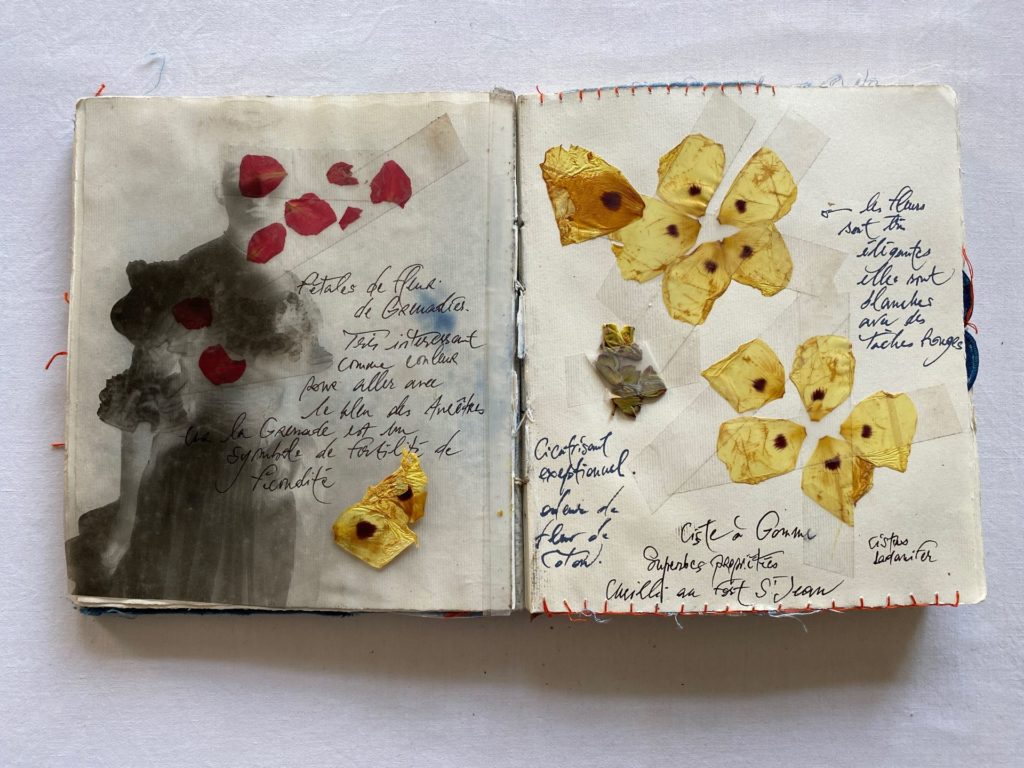 Pétales de fleur
de Grenadier.
Très interessant
comme couleur
pour aller avec
le bleu des Ancêtres
la Grenade est un
symbole de fertilité de
fécondité
les fleurs
sont très
élégantes
elles sont
blanches
avec des
taches Rouges
Cicatrisant
exceptionnel.
odeur de
fleur de
Coton.
Ciste à Gomme
Superbes propriétés
Cueilli au fort St Jean
Cistus
ladanifer